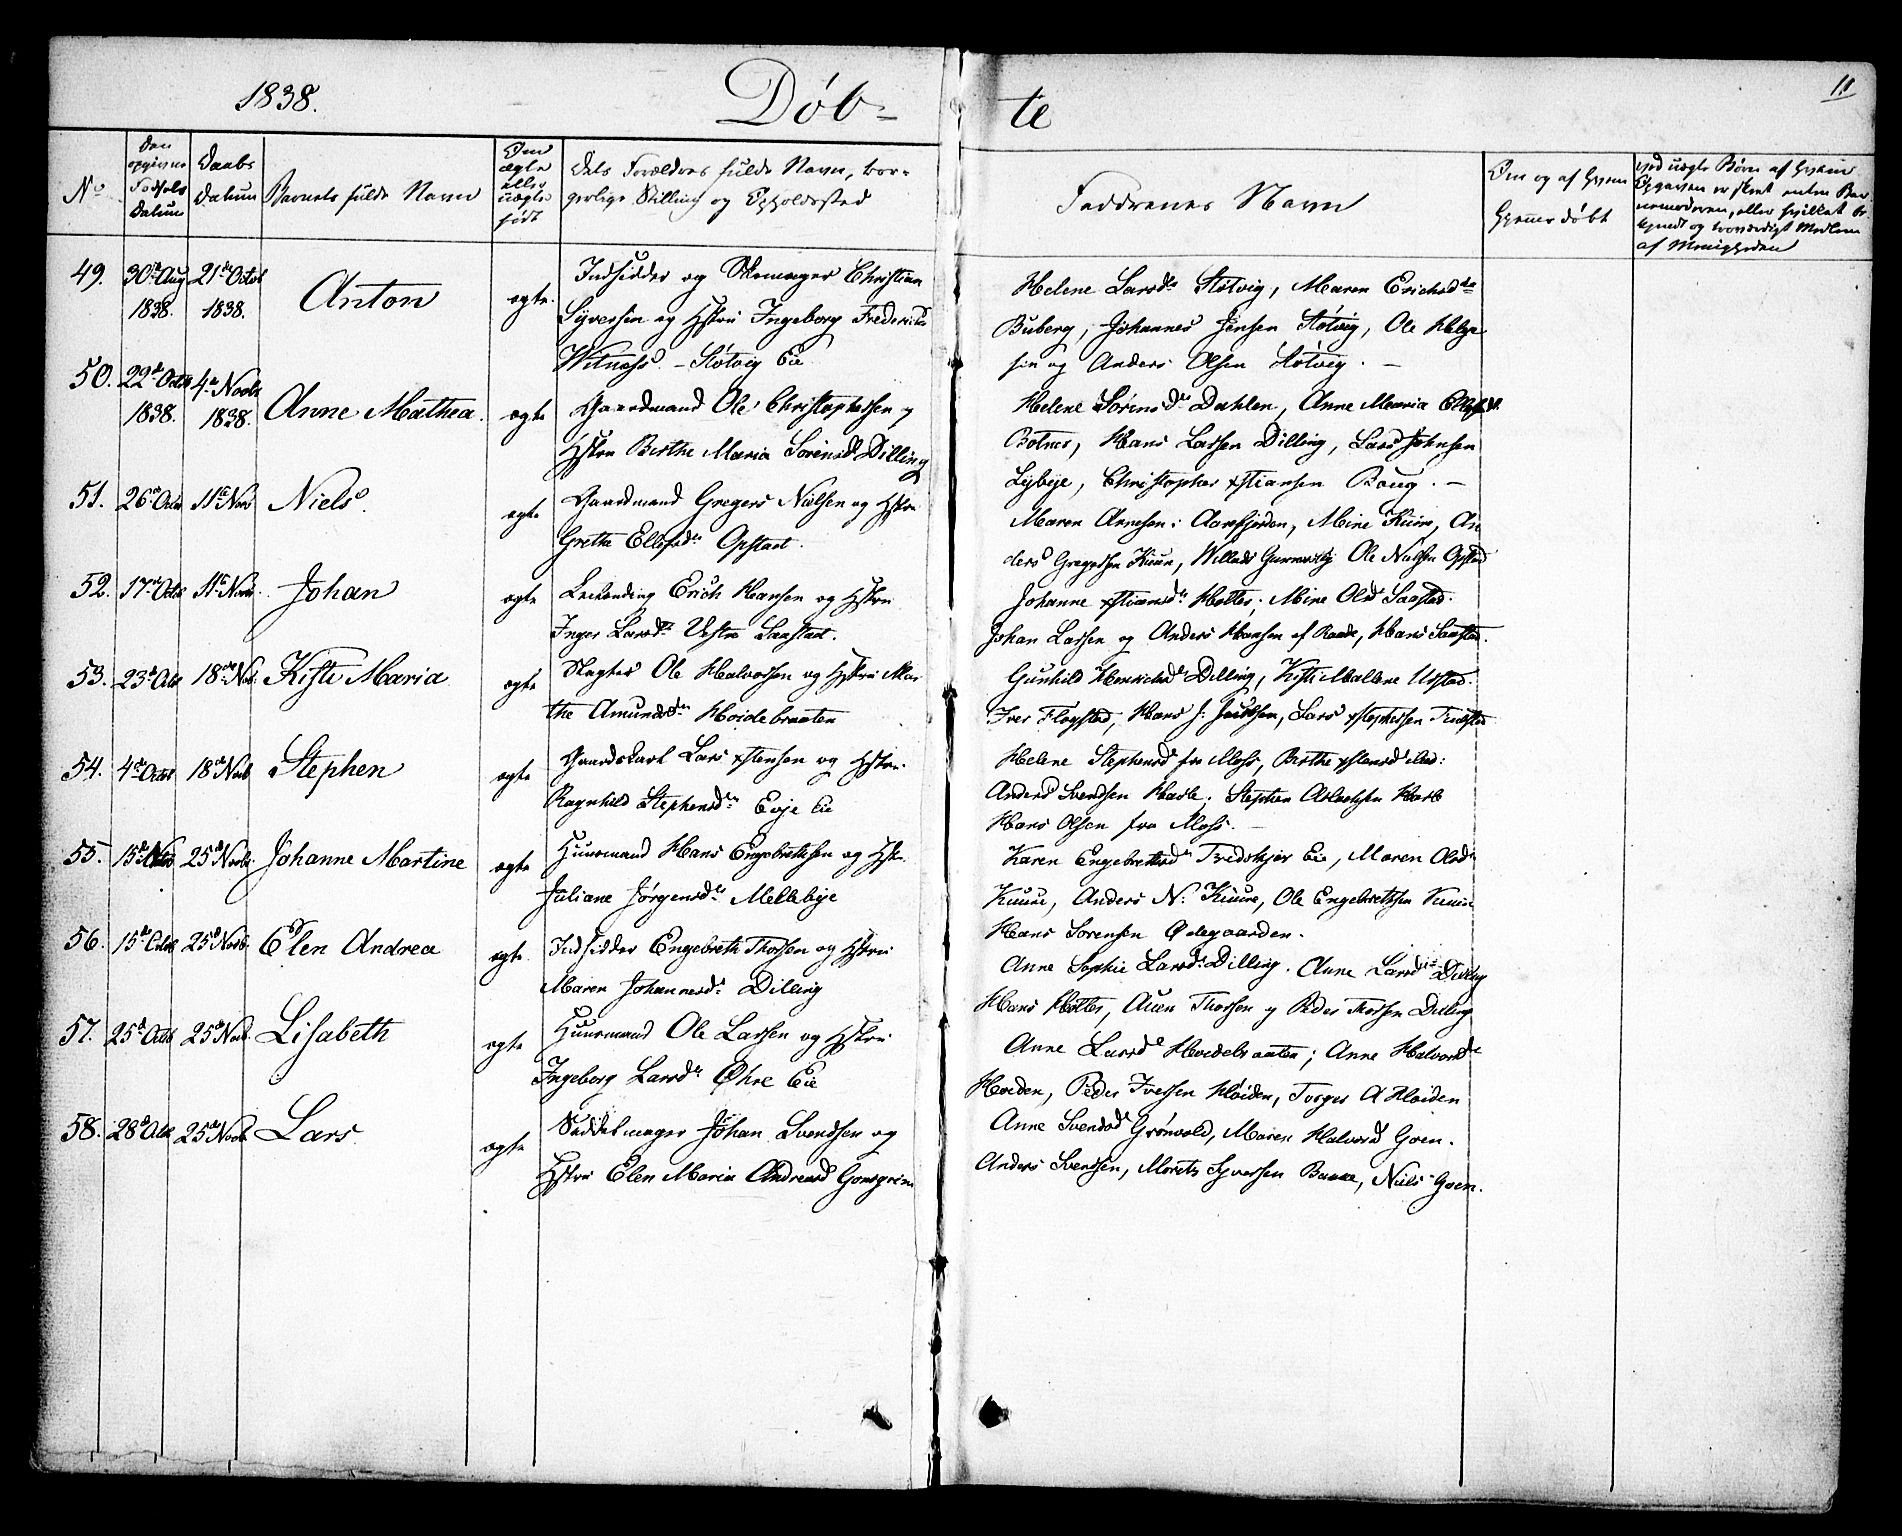 1838.
Døb-
te
11
No
Den opgivne Fødsels Datum
Daabs Datum
Barnets fulde Navn
Om ægte eller uægte født
Dets Forældres fulde Navn, bor-
gerlige Stilling og Opholdssted
Faddrenes Navn
Om og af hvem
hjemmedøbt
ved uægte Børn af hvem
Opgaven er skeet enten Bar-
nemoderen, eller hvilket be-
kjendt og troværdigt Medlem
af Menigheden
49. 30te Aug 1838. 21de Octob 1838. Anton ægte.
Indsidder og Skomager Christian
Syversen og Hstru Ingeborg Fredericks
Witnæss. – Støtvig Eie
Helene Larsdr Støtvig, Maren Erichsdtr
Buberg, Johannes Jensen Støtvig, Ole Helge
sen og Anders Olsen Støtvig. –
50. 22d Octb 1838. 4de Novbr 1838. Anne Mathea. ægte
Gaardmand Ole Christophersen og
Hstru Birthe Maria Sørensd Dilling
Helene Sørensdr Dahlen, Anne Maria
Botner, Hans Larsen Dilling, Lars Johnsen
Lybye, Christopher xstiansen Boug. –
51. 26de Octbr 11te Nov Niels. ægte
Gaardmand Gregers Nielsen og Hstru
Grethe Ellefsdr Opstad.
Maren Arnesen i Aarefjorden, Mine Kuure, An
ders Gregersen Kuure, Ole Nielsen Opstad
52. 17de Octbr 11te Novbr. Johan ægte
Leilending Erich Hansen og Hstru
Inger Larsdr Vestre Saastad.
Johanne xstiansdr Holter, Mine Olsd Saastad.
Johan Larsen og Anders Hansen af Raade, Hans Saastad.
53. 23d Octb 18de Nov. Kisti Maria ægte
Slagter Ole Halvorsen og Hstru Mar
the Amundsdr Hoidebraaten
Gunhild Henrichsdr Dilling, Kisti Mallene Ustad.
Iver Flogstad, Hans J. Lars xstophersen
54. 4de Octbr 18de Novb Stephen ægte
Gaardskarl Lars xstensen og Hstru.
Ragnhild Stephensdr Evje Eie
Helene Stephensd fra Moss, Birthe xstensd ibid:
Anders Svendsen Hasle. Stephen Hasle
Hans Olsen fra Moss. –
55. 15d 25d Novbr. Johanne Martine ægte
Huusmand Hans Engebrethsen og Hstru.
Juliane Jørgensdr Mellebye
Karen Engebrethsdr Tredskjær Eie, Maren Olsdr
Kuure, Anders N. Kuure, Ole Engebrethsen Kuure
Hans Sørensen Ødegaarden.
56. 15de Octob 25d Novb. Elen Andrea ægte.
Indsidder Engebreth Thorsen og Hstru
Maren Johannesdr Dilling
Anne Sophie Larsdr Dilling. Anne Larsdr Dilling
Hans Holter, Thorsen og Peder Thorsen Dilling
57. 25d Octb 25d Novb. Lisabeth ægte
Huusmand Ole Larsen og Hstru
Ingeborg Larsdr Øhre Eie
Anne Larsd Hoidebraaten; Anne Halvorsdr
Hoiden, Peder Iversen Høiden, Torger A Høiden
58. 28d Octb 25de Novb. Lars ægte
Saddelmager Johan Svendsen og
Hstru Elen Maria Andreasd Gonsgrim
Anne Svendsdr Grønvold, Maren Halvorsd Goen.
Anders Svendsen, Morits Syversen Niels Goen.